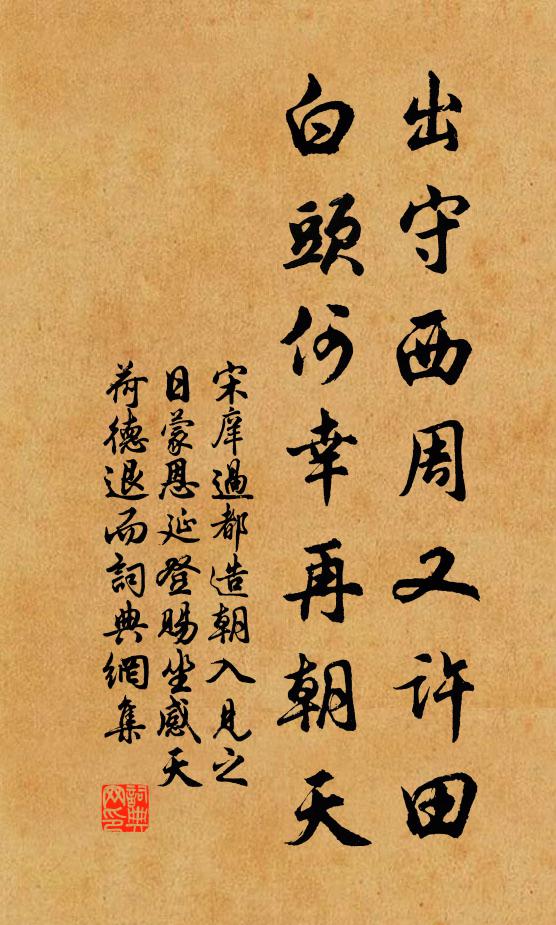 出守西周又許田
白頭何幸再朝天
宋庠過都造朝入見之
日蒙恩延登賜坐感天
荷德退而詞典網集
詞典
网印